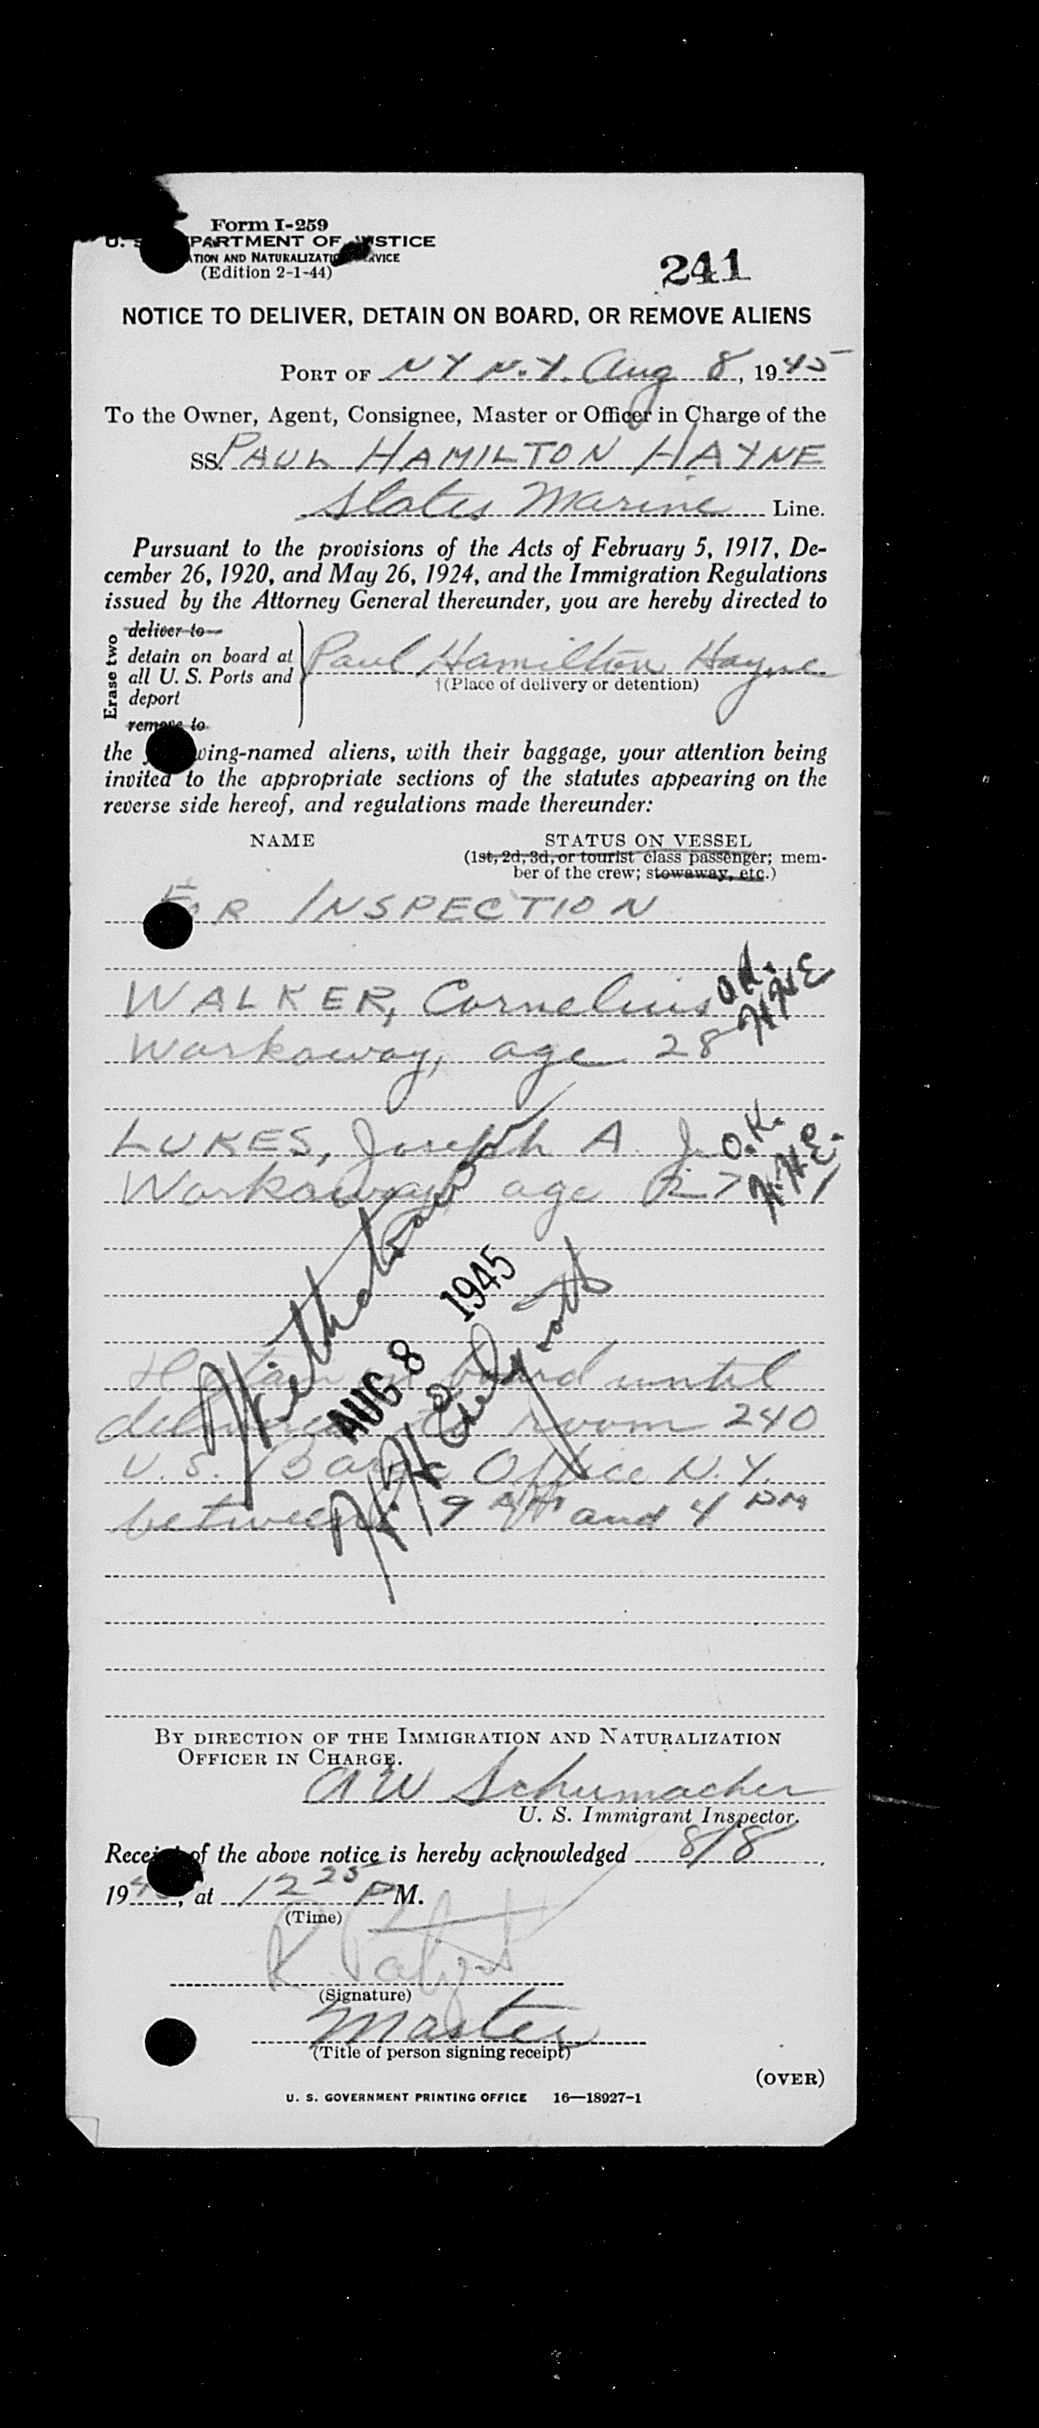 Form I-259
U. S. DEPARTMENT OF JUSTICE
IMMIGRATION AND NATURALIZATION SERVICE
(Edition 2-1-44)
241
NOTICE TO DELIVER, DETAIN ON BOARD, OR REMOVE ALIENS
PORT OF NY N.Y. Aug 8, 1945
To the Owner, Agent, Consignee, Master or Officer in Charge of the
SS. PAUL HAMILTON HAYNE
States Marine Line.
Pursuant to the provisions of the Acts of February 5, 1917, De-
cember 26, 1920, and May 26, 1924, and the Immigration Regulations
issued by the Attorney General thereunder, you are hereby directed to
Erase two
deliver to
detain on board at
all U. S. Ports and
deport
remove to
Paul Hamilton Hayne
†(Place of delivery or detention)
the following-named aliens, with their baggage, your attention being
invited to the appropriate sections of the statutes appearing on the
reverse side hereof, and regulations made thereunder:
NAME STATUS ON VESSEL
(1st, 2d, 3d, or tourist class passenger; mem-
ber of the crew; stowaway, etc.)
FOR INSPECTION
WALKER, Cornelius O.K.
Workaway, age 28 H.H.E
LUKES, Joseph A. Jr O.K.
Workaway age 27 H.H.E.
Withdrawn
AUG 8 1945
H.H.
Detain on board until
delivered to room 240
U.S. Barge Office N.Y.
between 9 AM and 4 PM
BY DIRECTION OF THE IMMIGRATION AND NATURALIZATION
OFFICER IN CHARGE.
A W Schumacher
U. S. Immigrant Inspector.
Receipt of the above notice is hereby acknowledged 8/8,
1945, at 12 25 P M.
(Time)
K
(Signature)
Master
(Title of person signing receipt)
(OVER)
U. S. GOVERNMENT PRINTING OFFICE 16—18927-1